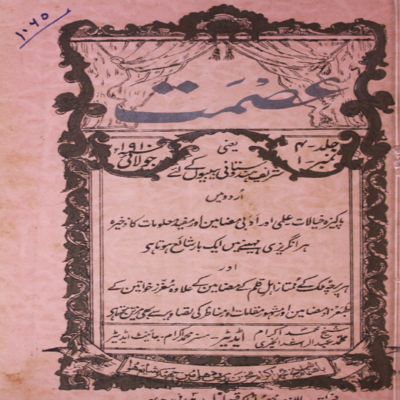 ۱۰۶۵
عصمت
جلد - ۴
نمبر - ۱
یعنی
۱۹۱۰
جولائی
شریف ہندوستانی بیبیوں کے لئے
اردو میں
پاکیزہ خیالات علمی اور ادبی مضامین اور مفید معلومات کا ذخیرہ
ہر انگریزی مہینے میں ایک بار شائع ہوتا ہے
اور
ہر پرچہ ملک کے ممتاز اہل قلم کے مضامین کے علاوہ معزز خواتین کے
مضامین اور مشہور مقامات اور مناظر کی تصاویر سے بھی مزین ہوتا ہے
شیخ محمد اکرام
محمد عبدالراشد الخیری
ایڈیٹر
مسز محمد اکرام - جائنٹ ایڈیٹر